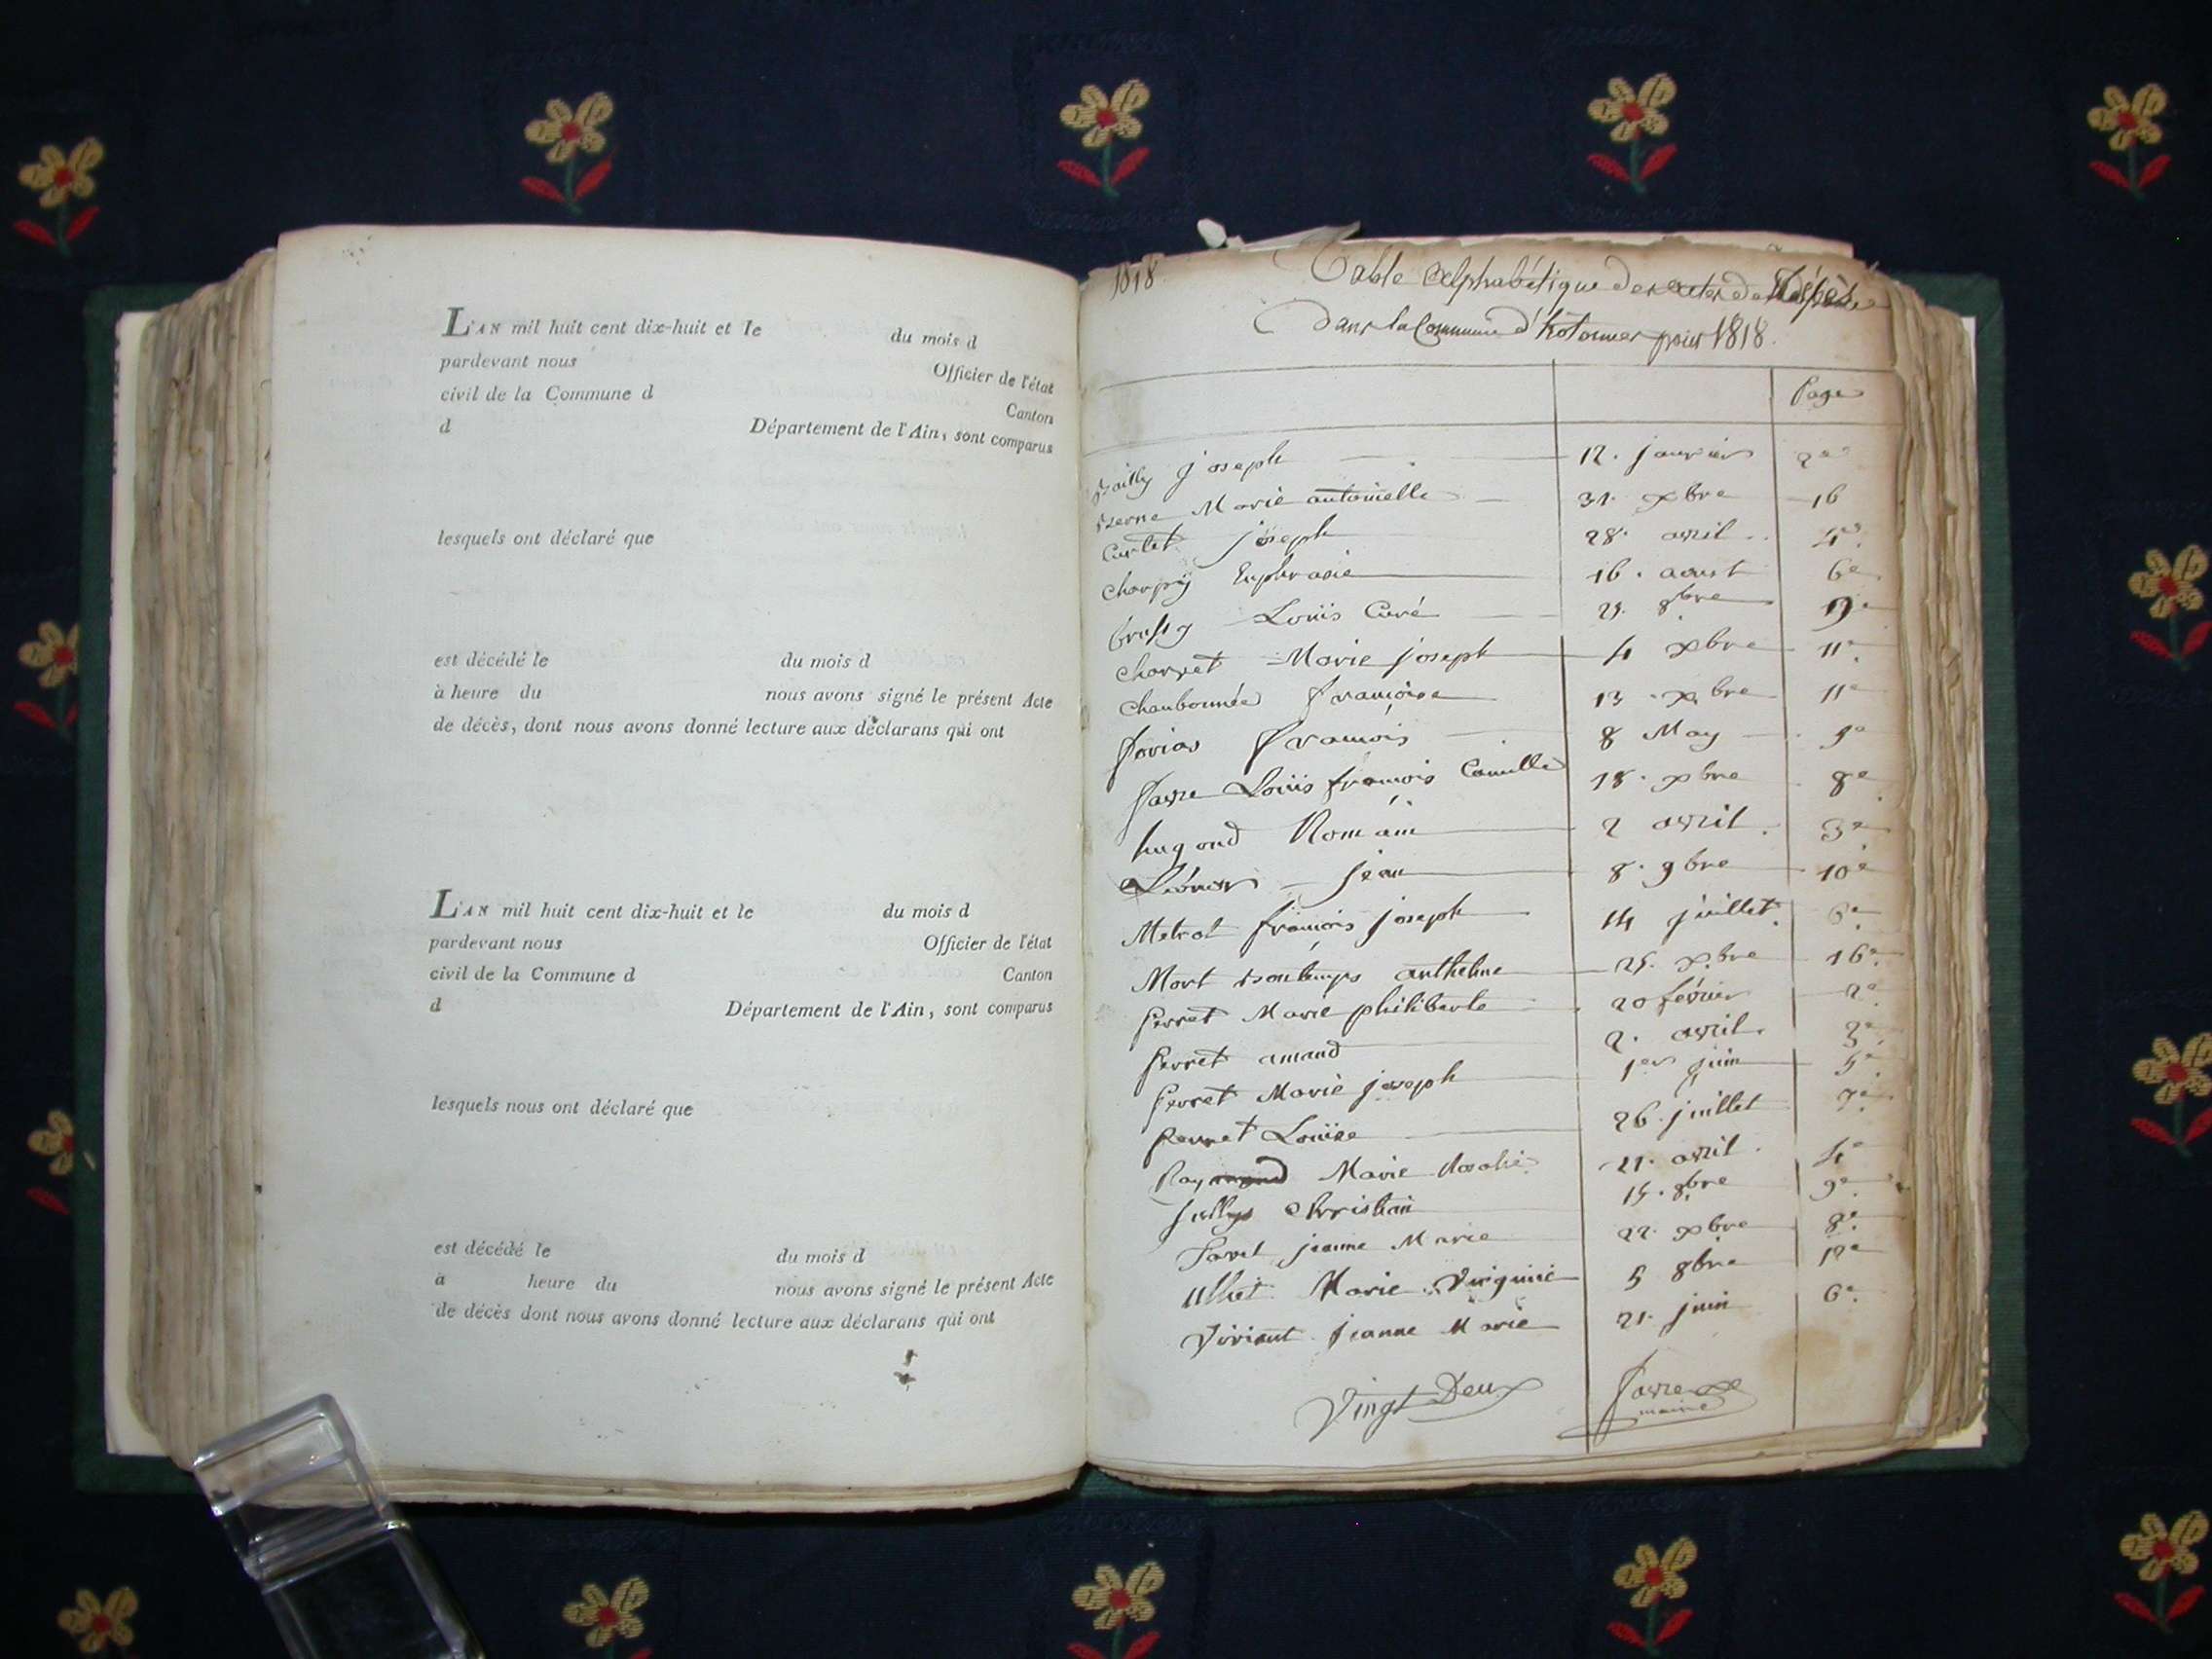 L'AN mil huit cent dix-huit et le du mois d
pardevant nous Officier de l'état
civil de la Commune d Canton
d Département de l'Ain, sont comparus
lesquels ont déclaré que
est décédé le du mois d
à heure du nous avons signé le présent Acte
de décès, dont nous avons donné lecture aux déclarans qui ont
L'AN mil huit cent dix-huit et le du mois d
pardevant nous Officier de l'état
civil de la Commune d Canton
d Département de l'Ain, sont comparus
lesquels nous ont déclaré que
est décédé le du mois d
à heure du nous avons signé le présent Acte
de décès dont nous avons donné lecture aux déclarans qui ont
1818
Table Alphabétique des actes de
Dans la Commune d'hotonnes pour 1818.
Page
Bailly joseph 12. janvier 2e
Berne Marie antoinelle 31. xbre 16
Carlet joseph 28. avril 4e
Charpÿ Euphrasie 16. aoust 6e
Louis Curé 8bre
Charvet Marie joseph 4 xbre 11e
Charbonnée françoise 13. xbre 11e
françois 8 May
favre Louïs françois Camille 18. xbre 8e
hugond Romain 2 avril 3e
jean 8. 9bre 10e
Metral françois joseph 14 juillet 6e
Mort Bontemps anthelme 25. xbre 16e
perret Marie philiberte 20 février 2e
perret amand 2. avril 3e
perret Marie joseph 1er juin 5e
perret Louïse 26. juillet 7e
Marie 21. avril 4e
Christian 15. 8bre 9e
jeanne Marie 22. xbre 8e
Ulliet Marie Virginie 5 8bre 12e
Viviant jeanne Marie 21. juin 6e
Vingt Deux
favre
maire